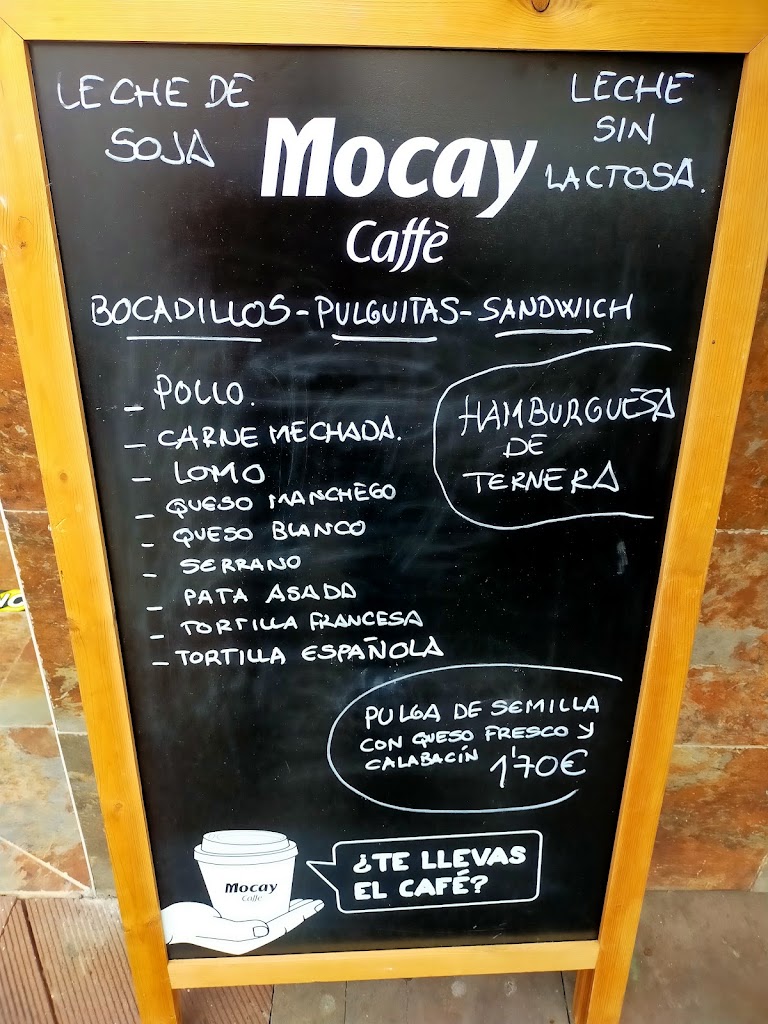 LECHE DE
SOJA
LECHE
SIN
LACTOSA.
Mocay
Caffè
BOCADILLOS - PULGUITAS - SANDWICH
- POLLO.
- CARNE MECHADA.
- LOMO
- QUESO MANCHEGO
- QUESO BLANCO
- SERRANO
- PATA ASADA
- TORTILLA FRANCESA
- TORTILLA ESPAÑOLA
HAMBURGUESA
DE
TERNERA
PULGA DE SEMILLA
CON QUESO FRESCO Y
CALABACÍN 1'70€
¿TE LLEVAS
EL CAFÉ?
Mocay
Caffè